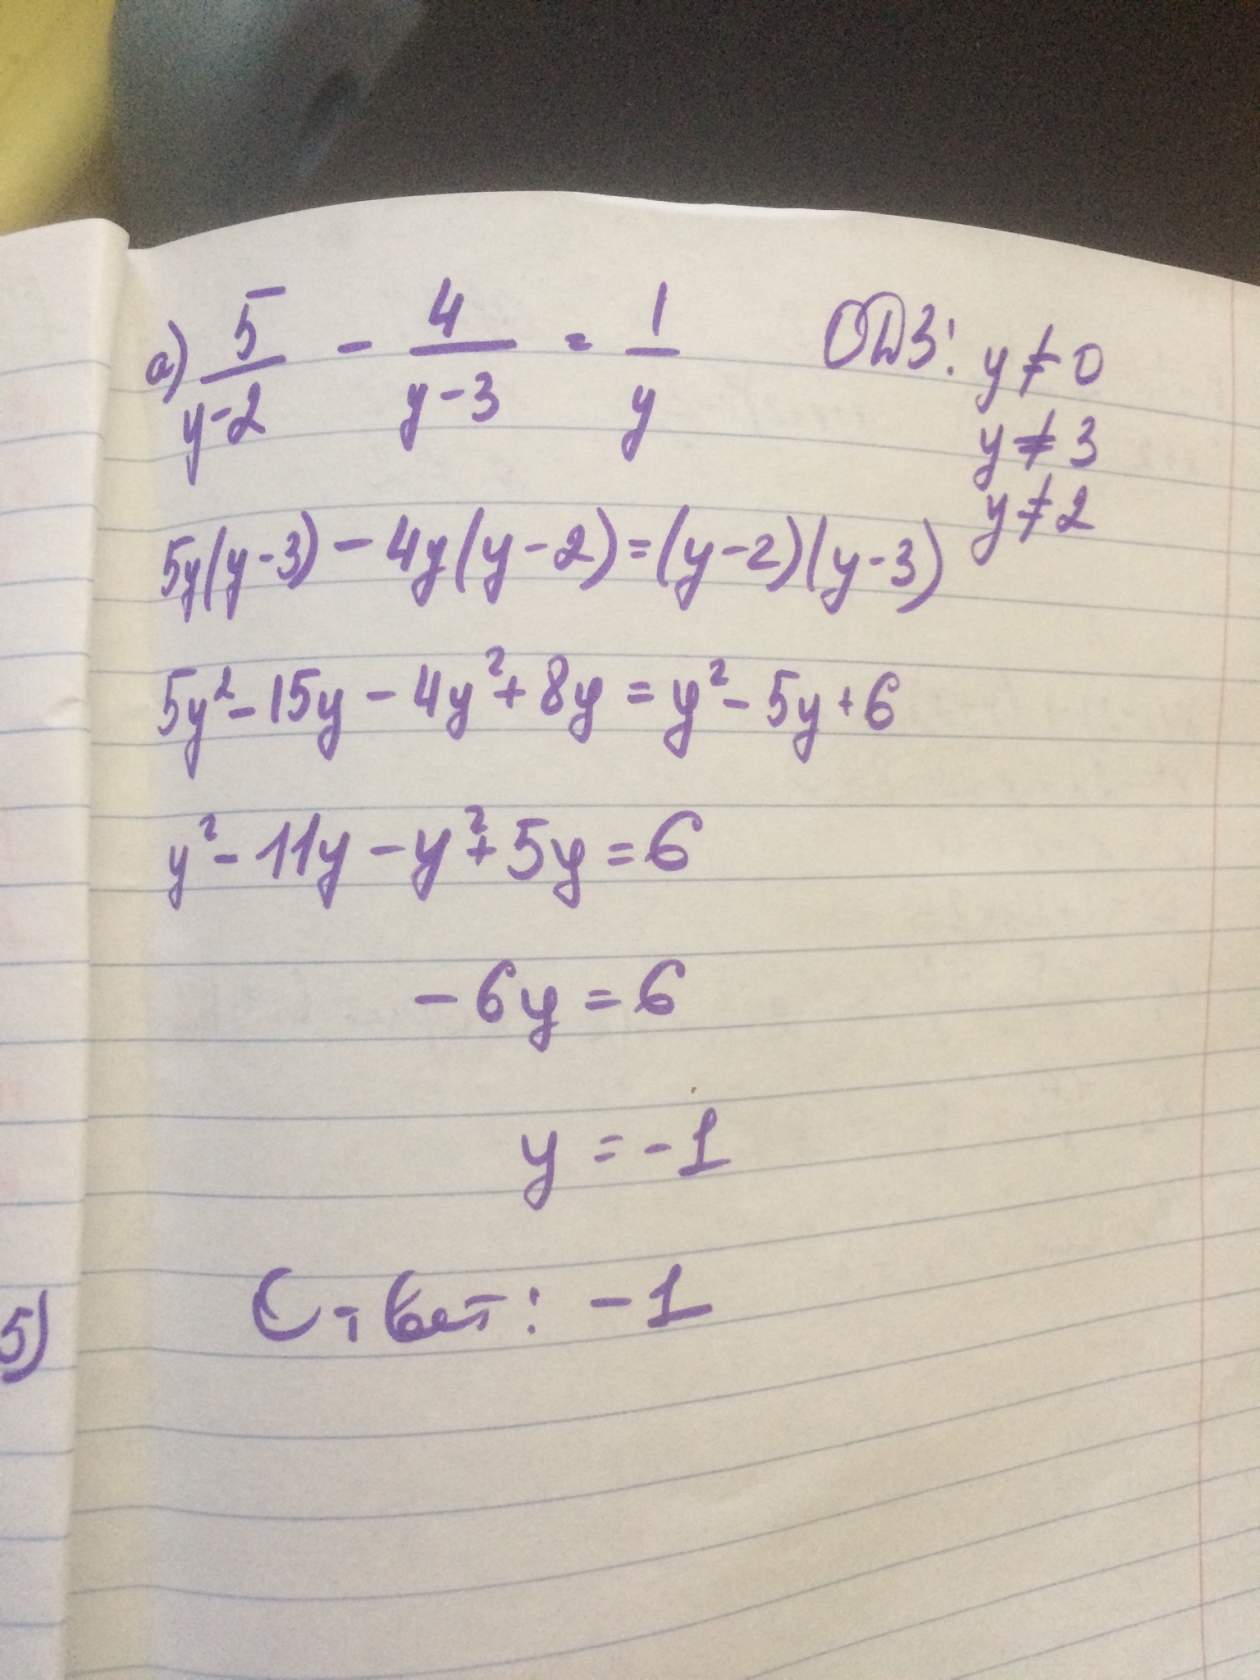 а) 5/(y-2) - 4/(y-3) = 1/y ОДЗ: y ≠ 0
y ≠ 3
y ≠ 2
5y(y-3) - 4y(y-2) = (y-2)(y-3)
5y² - 15y - 4y² + 8y = y² - 5y + 6
y² - 11y - y² + 5y = 6
-6y = 6
y = -1
Ответ: -1
5)